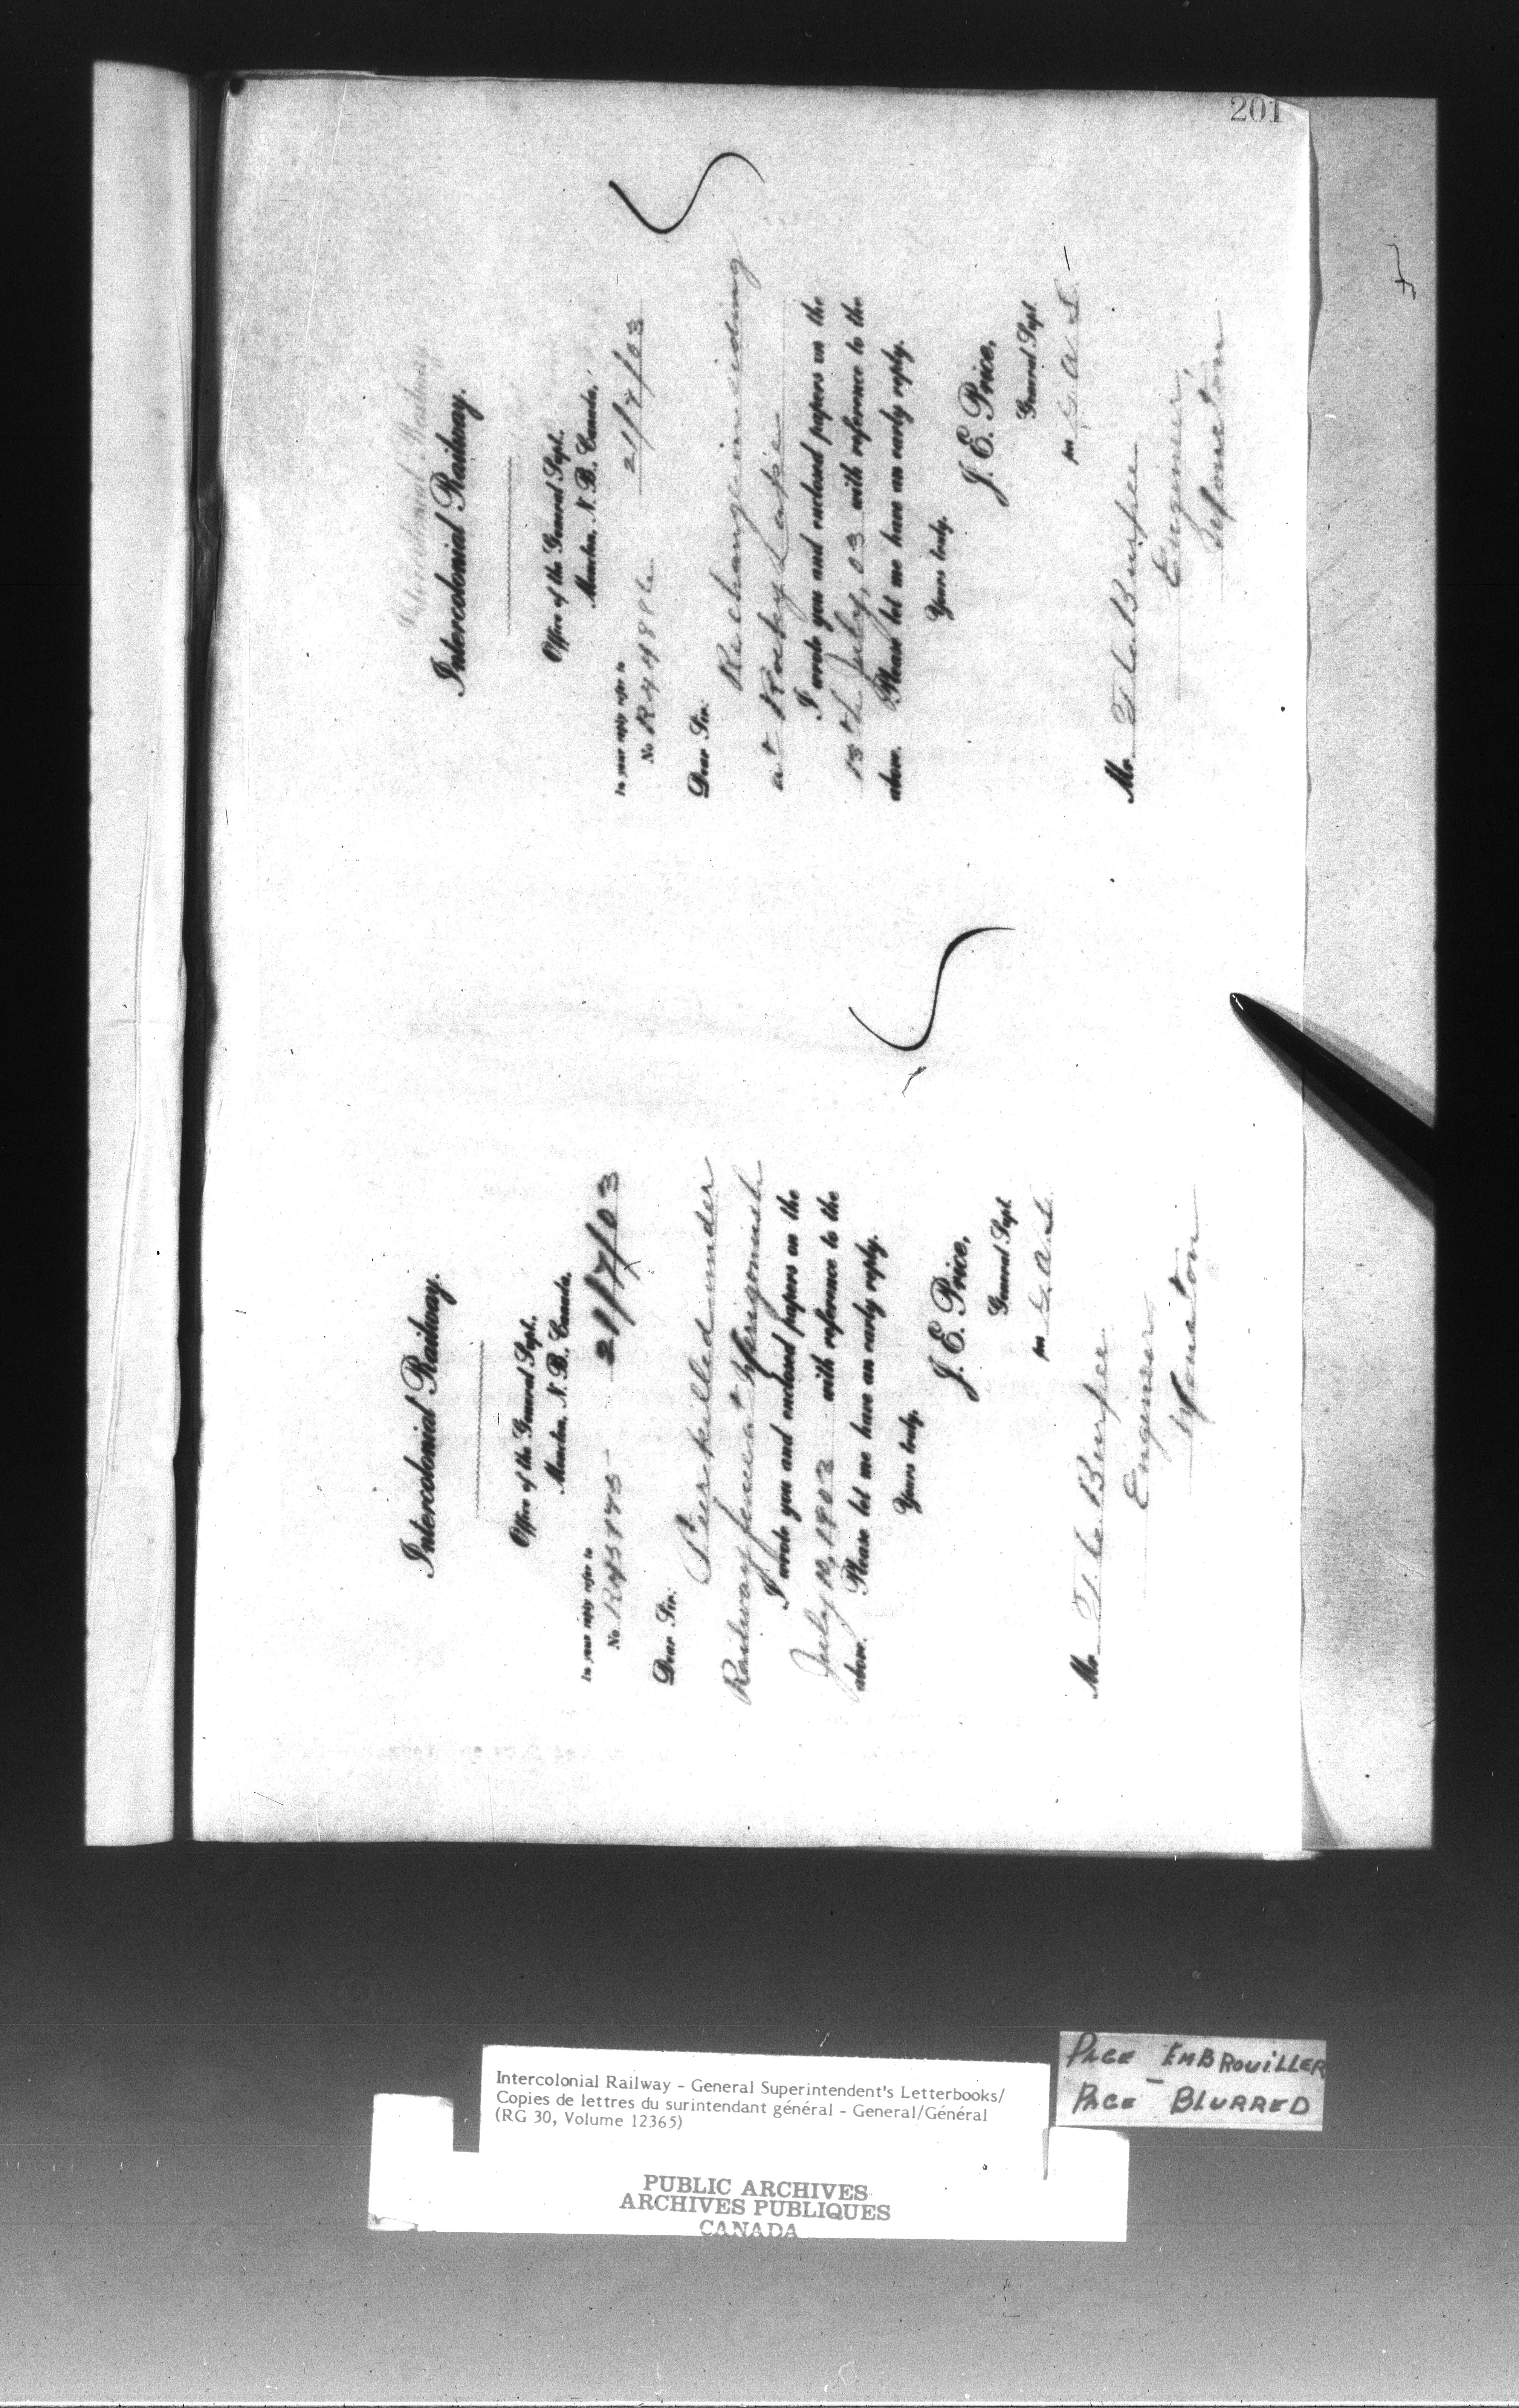 201
Intercolonial Railway.
Office of the General Supt.
Moncton, N. B., Canada,
21/7/03
In your reply refer to
No
Dear Sir:
Re change in siding
at Rocky Lake
I wrote you and enclosed papers on the
15th July, 03 with reference to the
above. Please let me have an early reply.
Yours truly,
J. E. Price,
General Supt.
per G. A. S.
Mr. T. C. Burpee
Engineer,
Moncton
Intercolonial Railway.
Office of the General Supt.
Moncton, N. B., Canada,
21/7/03
In your reply refer to
No
Dear Sir:
killed under
Railway fence at Merigomish
I wrote you and enclosed papers on the
July 10, 1903 with reference to the
above. Please let me have an early reply.
Yours truly,
J. E. Price,
General Supt.
per G. A. S.
Mr. T. C. Burpee
Engineer
Moncton
Intercolonial Railway - General Superintendent's Letterbooks/
Copies de lettres du surintendant général - General/Général
(RG 30, Volume 12365)
PAGE EMBROUILLER
PAGE - BLURRED
PUBLIC ARCHIVES
ARCHIVES PUBLIQUES
CANADA